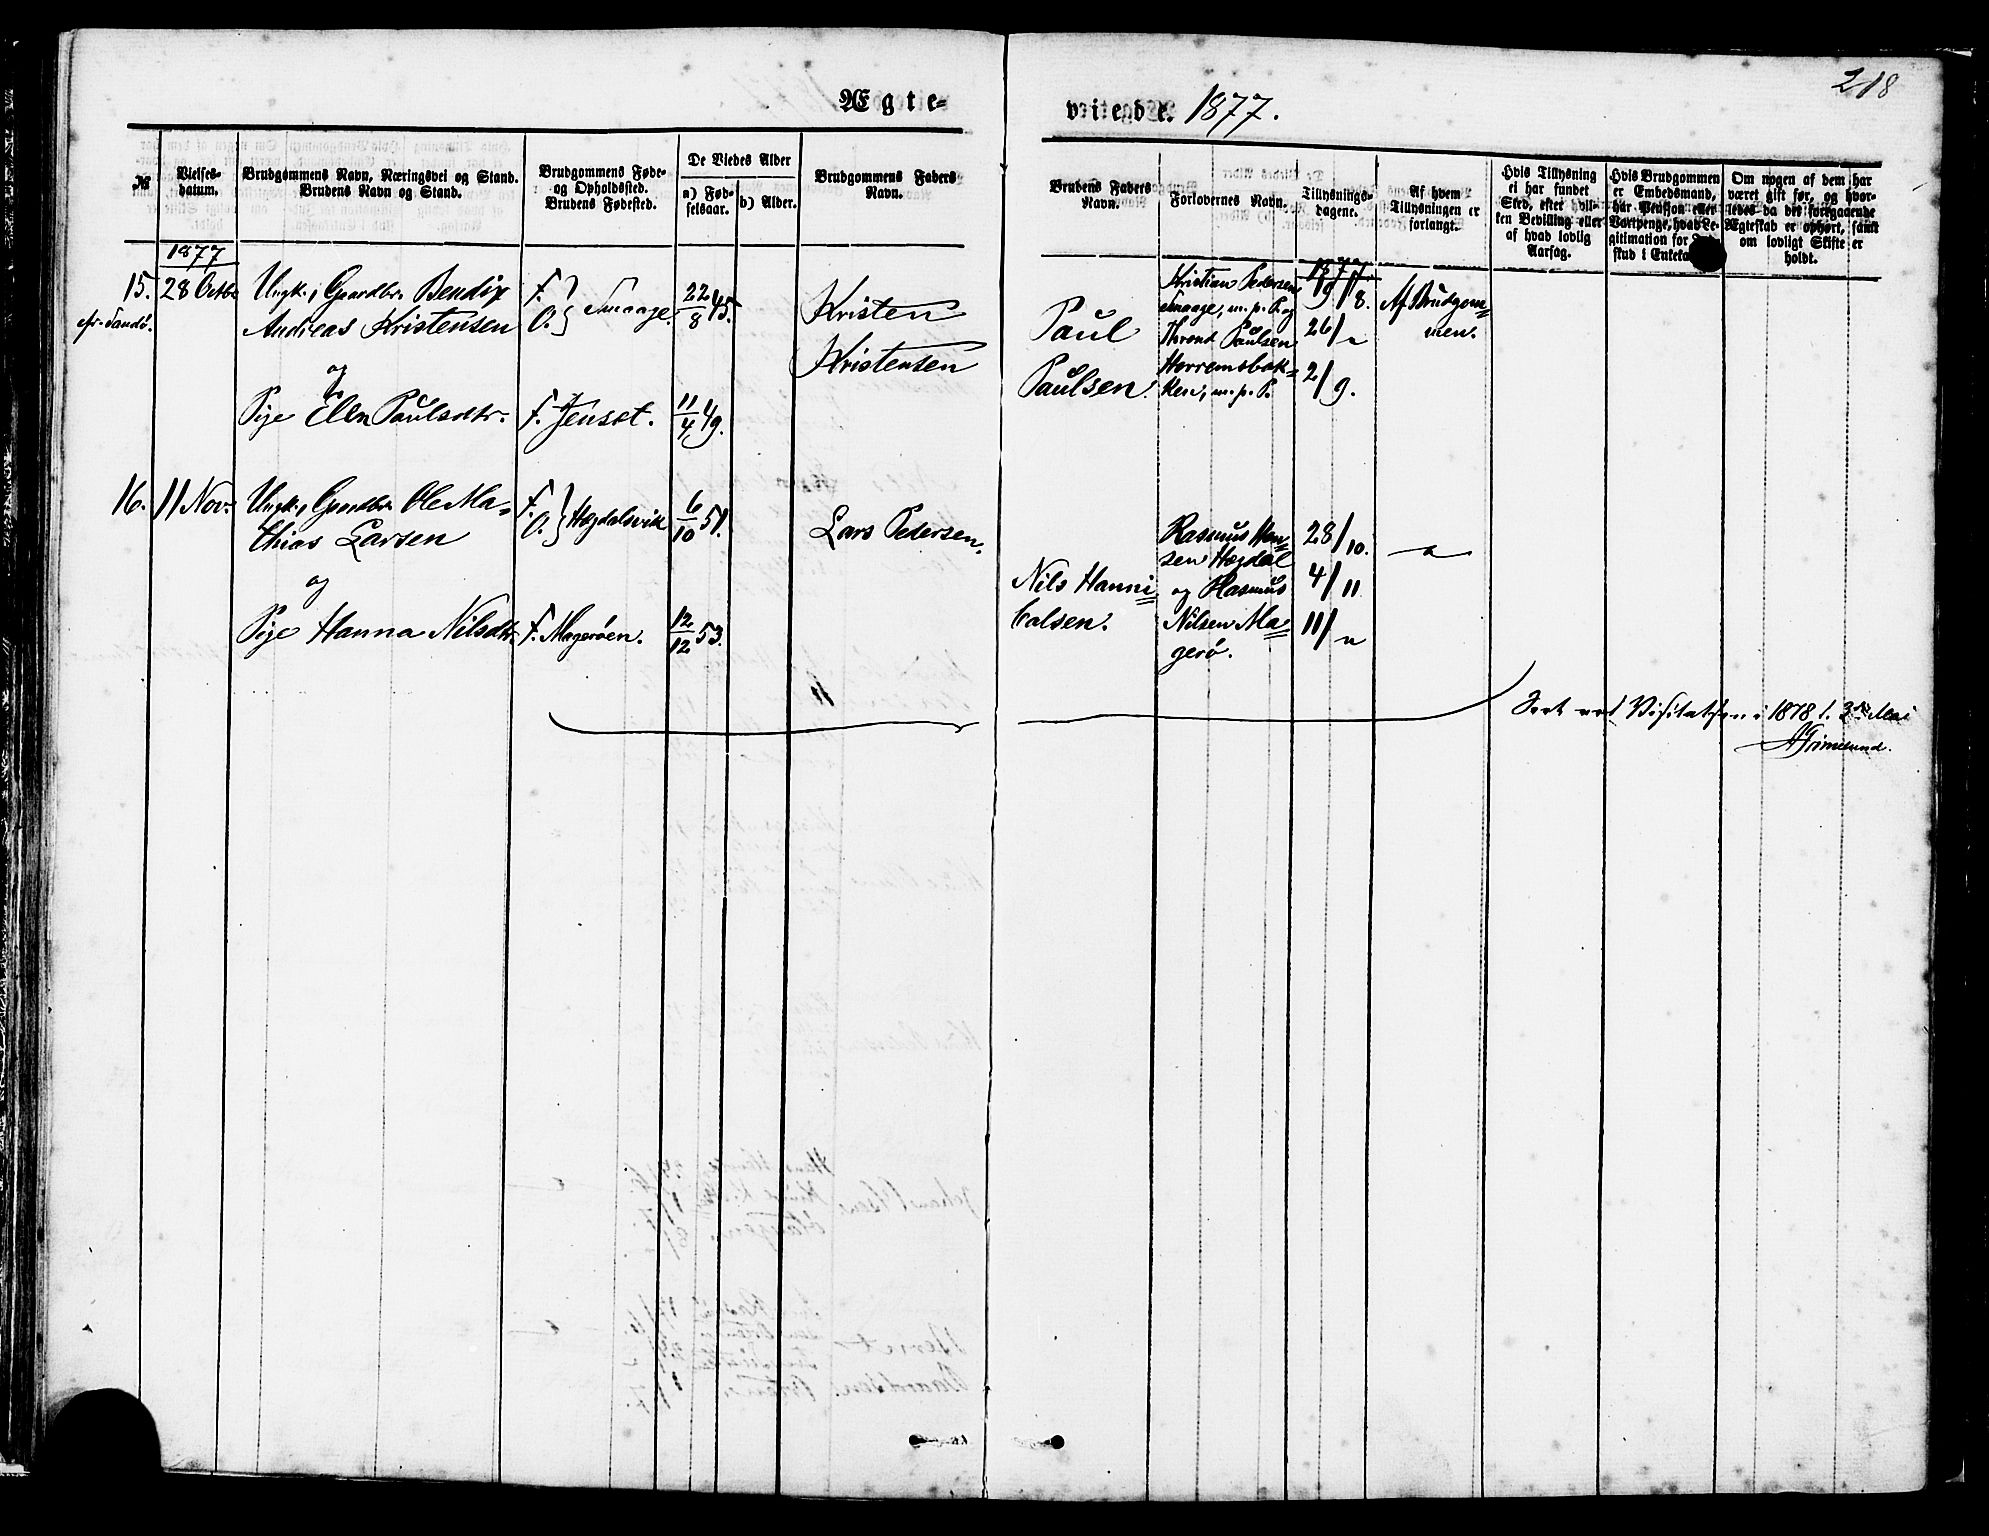 218
Ægte-
viede. 1877.
№
Vielses-
datum.
Brudgommens Navn, Næringsvei og Stand.
Brudens Navn og Stand.
Brudgommens Føde-
og Opholdssted.
Brudens Fødested.
De Viedes Alder
a) Fød-
selsaar.
b) Alder.
Brudgommens Faders
Navn.
Brudens Faders
Navn.
Forlovernes Navn.
Tillysnings-
dagene.
Af hvem
Tillysningen er
forlangt.
Hvis Tillysning
ei har fundet
Sted, efter hvil-
ken Bevilling eller
af hvad lovlig
Aarsag.
Hvis Brudgommen
er Embedsmand,
har Pension eller
Vartpenge, hvad Le-
gitimation for
skud i Enkeka
Om nogen af dem har
været gift før, og hvor-
ledes da det foregaaende
Ægteskab er ophørt, samt
om lovligt Skifte er
holdt.
1877
15.
Sandø.
28 Octbr
Ungk., Gaardbr. Bendix
Andreas Kristensen
og
Pige Elen Paulsdtr.
F.
O. } Smaage.
F. Jenset.
22/8 45.
11/4 49.
Kristen
Kristensen
Paul
Paulsen.
Kristian Pedersen
Smaage, m. p. P. og
Thrond Paulsen
Horremsbak=
ken, m. p. P.
1877
19/8.
26/"
2/9.
Af Brudgom=
men.
16.
11 Nov.
Ungk., Gaardbr. Ole Ma=
thias Larsen
og
Pige Hanna Nilsdtr.
F.
O. } Hægdalsvik
F. Magerøen.
6/10 51.
12/12 53.
Lars Pedersen.
Nils Hanni=
balsen.
Rasmus Han=
sen Hægdal
og Rasmus
Nilsen Ma=
gerø.
28/10.
4/11
11/"
"
Seet ved Visitatsen i 1878 d. 3die Mai
AGrimelund.